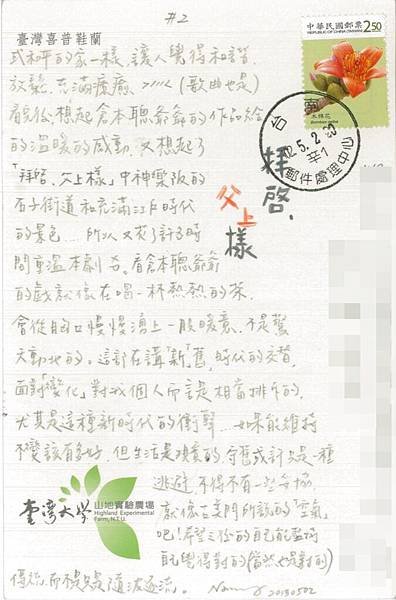 #2
臺灣喜普鞋蘭
中華民國郵票 2.50
REPUBLIC OF CHINA (TAIWAN)
木棉花
台南
郵件處理中心
式和平的家一樣,讓人覺得和諧,
放鬆,充滿療癒 (歌曲也是)
看後,想起倉本聰爺爺的作品給
的溫暖的感動,又想起了
「拜啓、父上様」中神樂坂的
石子街道和充滿江戶時代
的景色....所以又花了許多時
間重溫本劇 看倉本聰爺爺
的戲就像在喝一杯熱熱的茶,
會從胸口慢慢湧上一股暖意,不是驚
天動地的。這部在講「新」「舊」時代的交替,
面對「變化」對我個人而言是相當排斥的,
尤其是這種新時代的衝擊...如果能維持
不變該有多好,但生活是現實的,守舊或許只是一種
逃避,不得不有一些
就像
吧!希望三倍的自己能堅持
自己覺得對的(當然也是對的)
而不是只是隨波逐流。
20130502
拝啓、
父上
様
臺灣大學
山地實驗農場
Highland Experimental
Farm, N.T.U.